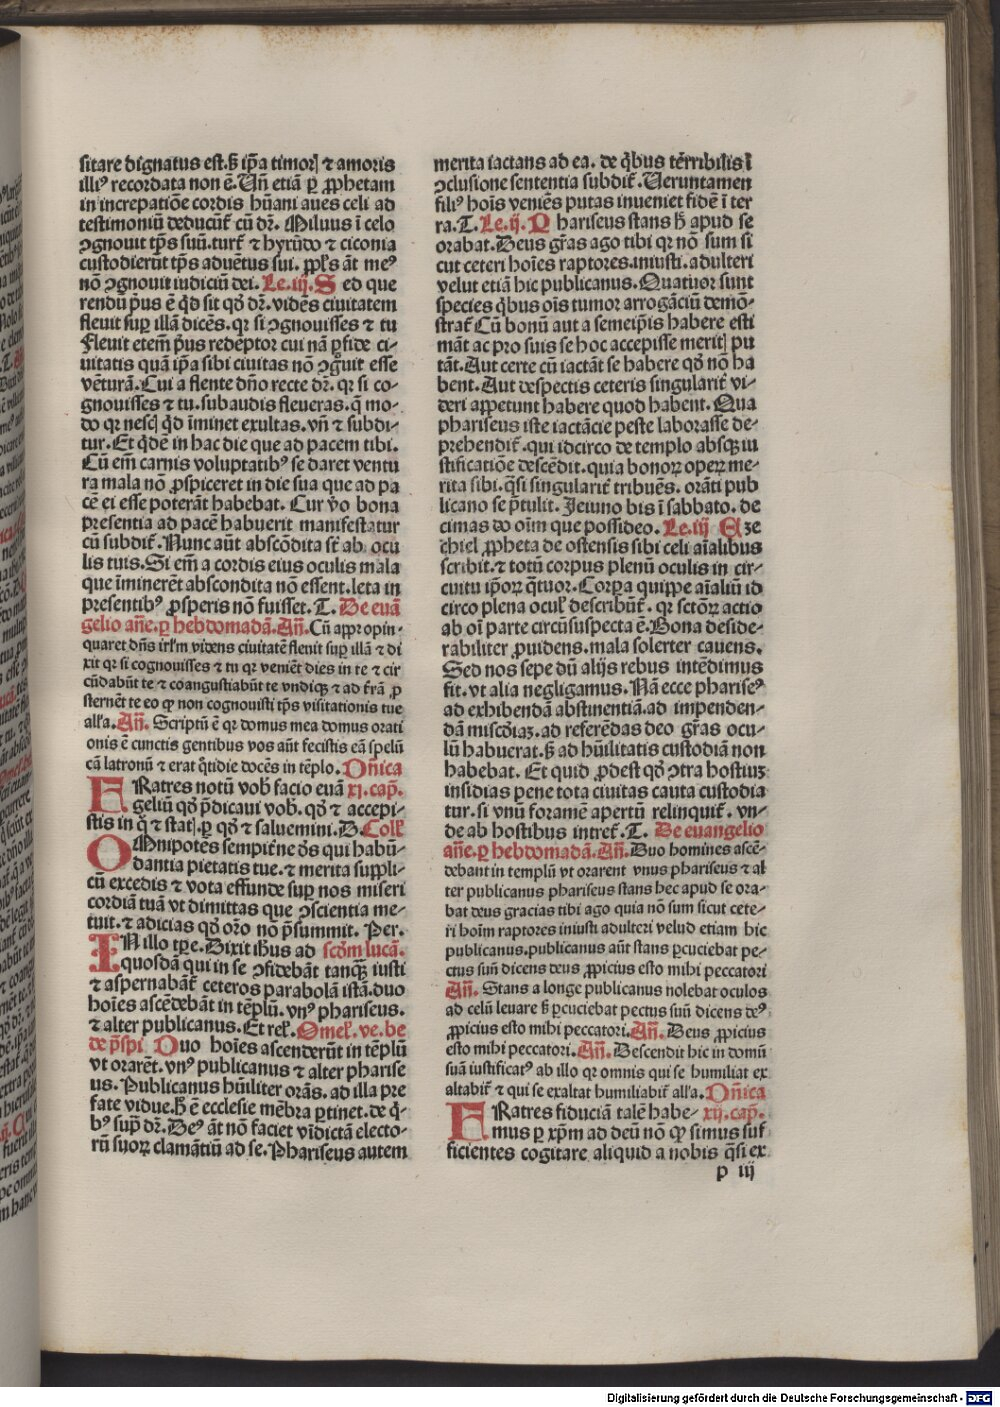 sitare dignatus est.ß ip̃a timorꝭ ⁊ amoris
illiꝰ recordata non ē. Un̄ etiā ꝑ ꝓphetam
in increpatiōe cordis hūani aues celi ad
testimoniū deducūt̃ cū dr̄. Miluus ī celo
ꝯgnouit tp̄s suū.turt̃ ⁊ hyrūdo ⁊ ciconia
custodierūt tp̄s aduētus sui. ppl̓s āt meꝰ
nō ꝯgnouit iudiciū dei. Le. iij. Sed que
rendū p̄us ē qd̄ sit qḋ dr̄. vidēs ciuitatem
fleuit suꝑ illā dicēs. qr si ꝯgnouisses ⁊ tu
Fleuit etem̄ p̄us redēptor cui nā ꝑfide ci⸗
uitatis quā ip̄a sibi ciuitas nō ꝯguit esse
vētura. Cui a flente dn̄o recte dr̄. qr si co⸗
gnouisses ⁊ tu.subaudis fleueras. q̄ mo⸗
do qr nescꝭ qd̄ īminet exultas. vn̄ ⁊ subdi⸗
tur. Et qdē in hac die que ad pacem tibi.
Cū em̄ carnis voluptatibꝰ se daret ventu
ra mala nō ꝓspiceret in die sua que ad pa
cē ei esse poterāt habebat. Cur v̓o bona
presentia ad pacē habuerit manifestatur
cū subdit̃. Nunc aūt abscōdita st̄ ab ocu
lis tuis. Si em̄ a cordis eius oculis mala
que īminerēt abscondita nō essent.leta in
presentibꝰ ꝓsperis nō fuisset. T. De euā
gelio ān̄e. ꝑ hebdomadā. An̄. Cū appropin⸗
quaret dn̄s irl̓m videns ciuitatē fleuit suꝑ illā ⁊ di
xit qr si cognouisses ⁊ tu qr veniēt dies in te ⁊ cir
cūdabūt te ⁊ coangustiabūt te vndiqꝫ ⁊ ad t̓rā ꝓ
sternēt te eo ꝙ non cognouisti tp̄s visitationis tue
all̓a. An̄. Scriptū ē qr domus mea domus orati
onis ē cunctis gentibus vos aūt fecistis eā spelū
cā latronū ⁊ erat qtidie docēs in tēplo. Dn̄ica
FRatres notū vob̓ facio euā xi. cap̄.
geliū qḋ p̄dicaui vob̓. qḋ ⁊ accepi⸗
stis in q̄ ⁊ statꝭ.ꝑ qḋ ⁊ saluemini. D. Coll̓
OMnipotēs sempit̓ne ds̄ qui habū⸗
dantia pietatis tue. ⁊ merita suppli⸗
cū excedis ⁊ vota effunde suꝑ nos miseri
cordiā tuā vt dimittas que ꝯscientia me⸗
tuit. ⁊ adicias qḋ or̄o nō p̄summit. Per.
IN illo tꝑe. Dixit ih̄us ad scd̄m lucā.
quosdā qui in se ꝯfidebāt tanqꝫ iusti
⁊ aspernabāt̃ ceteros parabolā istā.duo
hoīes ascēdebāt in tēplū. vnꝰ phariseus.
⁊ alter publicanus. Et rel̓. Omel̓. ve. be
de p̄sp̄i Duo hoīes ascenderūt in tēplū
vt orarēt. vnꝰ publicanus ⁊ alter pharise
us. Publicanus hūiliter orās. ad illa pre
fate vidue.h̓ ē ecclesie mēbra ꝑtinet. de q̄⸗
bꝰ sup̄ dr̄. Deꝰ āt nō faciet vīdictā electo⸗
rū suoꝝ clamātiū ad se. Phariseus autem
merita iactans ad ea. de qbus terribilis ī
ꝯclusione sententia subdit̃. Ueruntamen
filiꝰ hoīs veniēs putas inueniet fidē ī ter
ra. T. Le. ij. Phariseus stans h̓ apud se
orabat. Deus gr̄as ago tibi qr nō sum si
cut ceteri hoīes raptores. iniusti. adulteri
velut etiā hic publicanus. Quatuor sunt
species qbus oīs tumor arrogāciū demō⸗
strat̃ Cū bonū aut a semeip̄is habere esti
māt ac pro suis se hoc accepisse meritꝭ pu
tāt. Aut certe cū iactāt se habere qḋ nō ha
bent. Aut despectis ceteris singularit̓ vi⸗
deri appetunt habere quod habent. Qua
phariseus iste iactācie peste laborasse de⸗
prehendit̃. qui idcirco de templo absqꝫ iu
stificatiōe descēdit. quia bonoꝝ operꝝ me⸗
rita sibi. qsi singularit̓ tribuēs. orāti pub
licano se p̄tulit. Ieiuno bis ī sabbato. de
cimas do oīm que possideo. Le. iij Eze
chiel ꝓpheta de ostensis sibi celi aīalibus
scribit. ⁊ totū corpus plenū oculis in cir⸗
cuitu ip̄oꝝ qtuor. Corꝑa quippe aīaliū id
circo plena ocul̓ describūt̃. qr sctōꝝ actio
ab oī parte circūsuspecta ē. Bona deside⸗
rabiliter ꝓuidens. mala solerter cauens.
Sed nos sepe dū alijs rebus intēdimus
fit. vt alia negligamus. Nā ecce phariseꝰ
ad exhibendā abstinentiā. ad impenden⸗
dā miscd̄iaꝫ. ad referēdas deo gr̄as ocu⸗
lū habuerat.ß ad hūilitatis custodiā non
habebat. Et quid ꝓdest qḋ ꝯtra hostiuꝫ
insidias pene tota ciuitas cauta custodia
tur. si vnū foramē apertū relinquit̃. vn⸗
de ab hostibus intret̃. T. De euangelio
ān̄e. ꝑ hebdomadā. An̄. Duo homines ascē⸗
debant in templū vt orarent vnus phariseus ⁊ al
ter publicanus phariseus stans hec apud se ora⸗
bat deus gracias tibi ago quia nō sum sicut cete⸗
ri hoīm raptores iniusti adulteri velud etiam hic
publicanus.publicanus aūt stans ꝑcuciebat pe⸗
ctus suū dicens deus ꝓpicius esto mihi peccatori
An̄. Stans a longe publicanus nolebat oculos
ad celū leuare ß ꝑcuciebat pectus suū dicens deꝰ
ꝓpicius esto mihi peccatori. An̄. Deus ꝓpicius
esto mihi peccatori. An̄. Descendit hic in domū
suā iustificatꝰ ab illo qr omnis qui se humiliat ex
altabit̃ ⁊ qui se exaltat humiliabit̃ all̓a. Dn̄ica
FRatres fiduciā talē habe⸗ xij. cap̄.
mus ꝑ xp̄m ad deū nō ꝙ simus suf
ficientes cogitare aliquid a nobis qsi ex
p iij
Digitalisierung gefördert durch die Deutsche Forschungsgemeinschaft - DFG